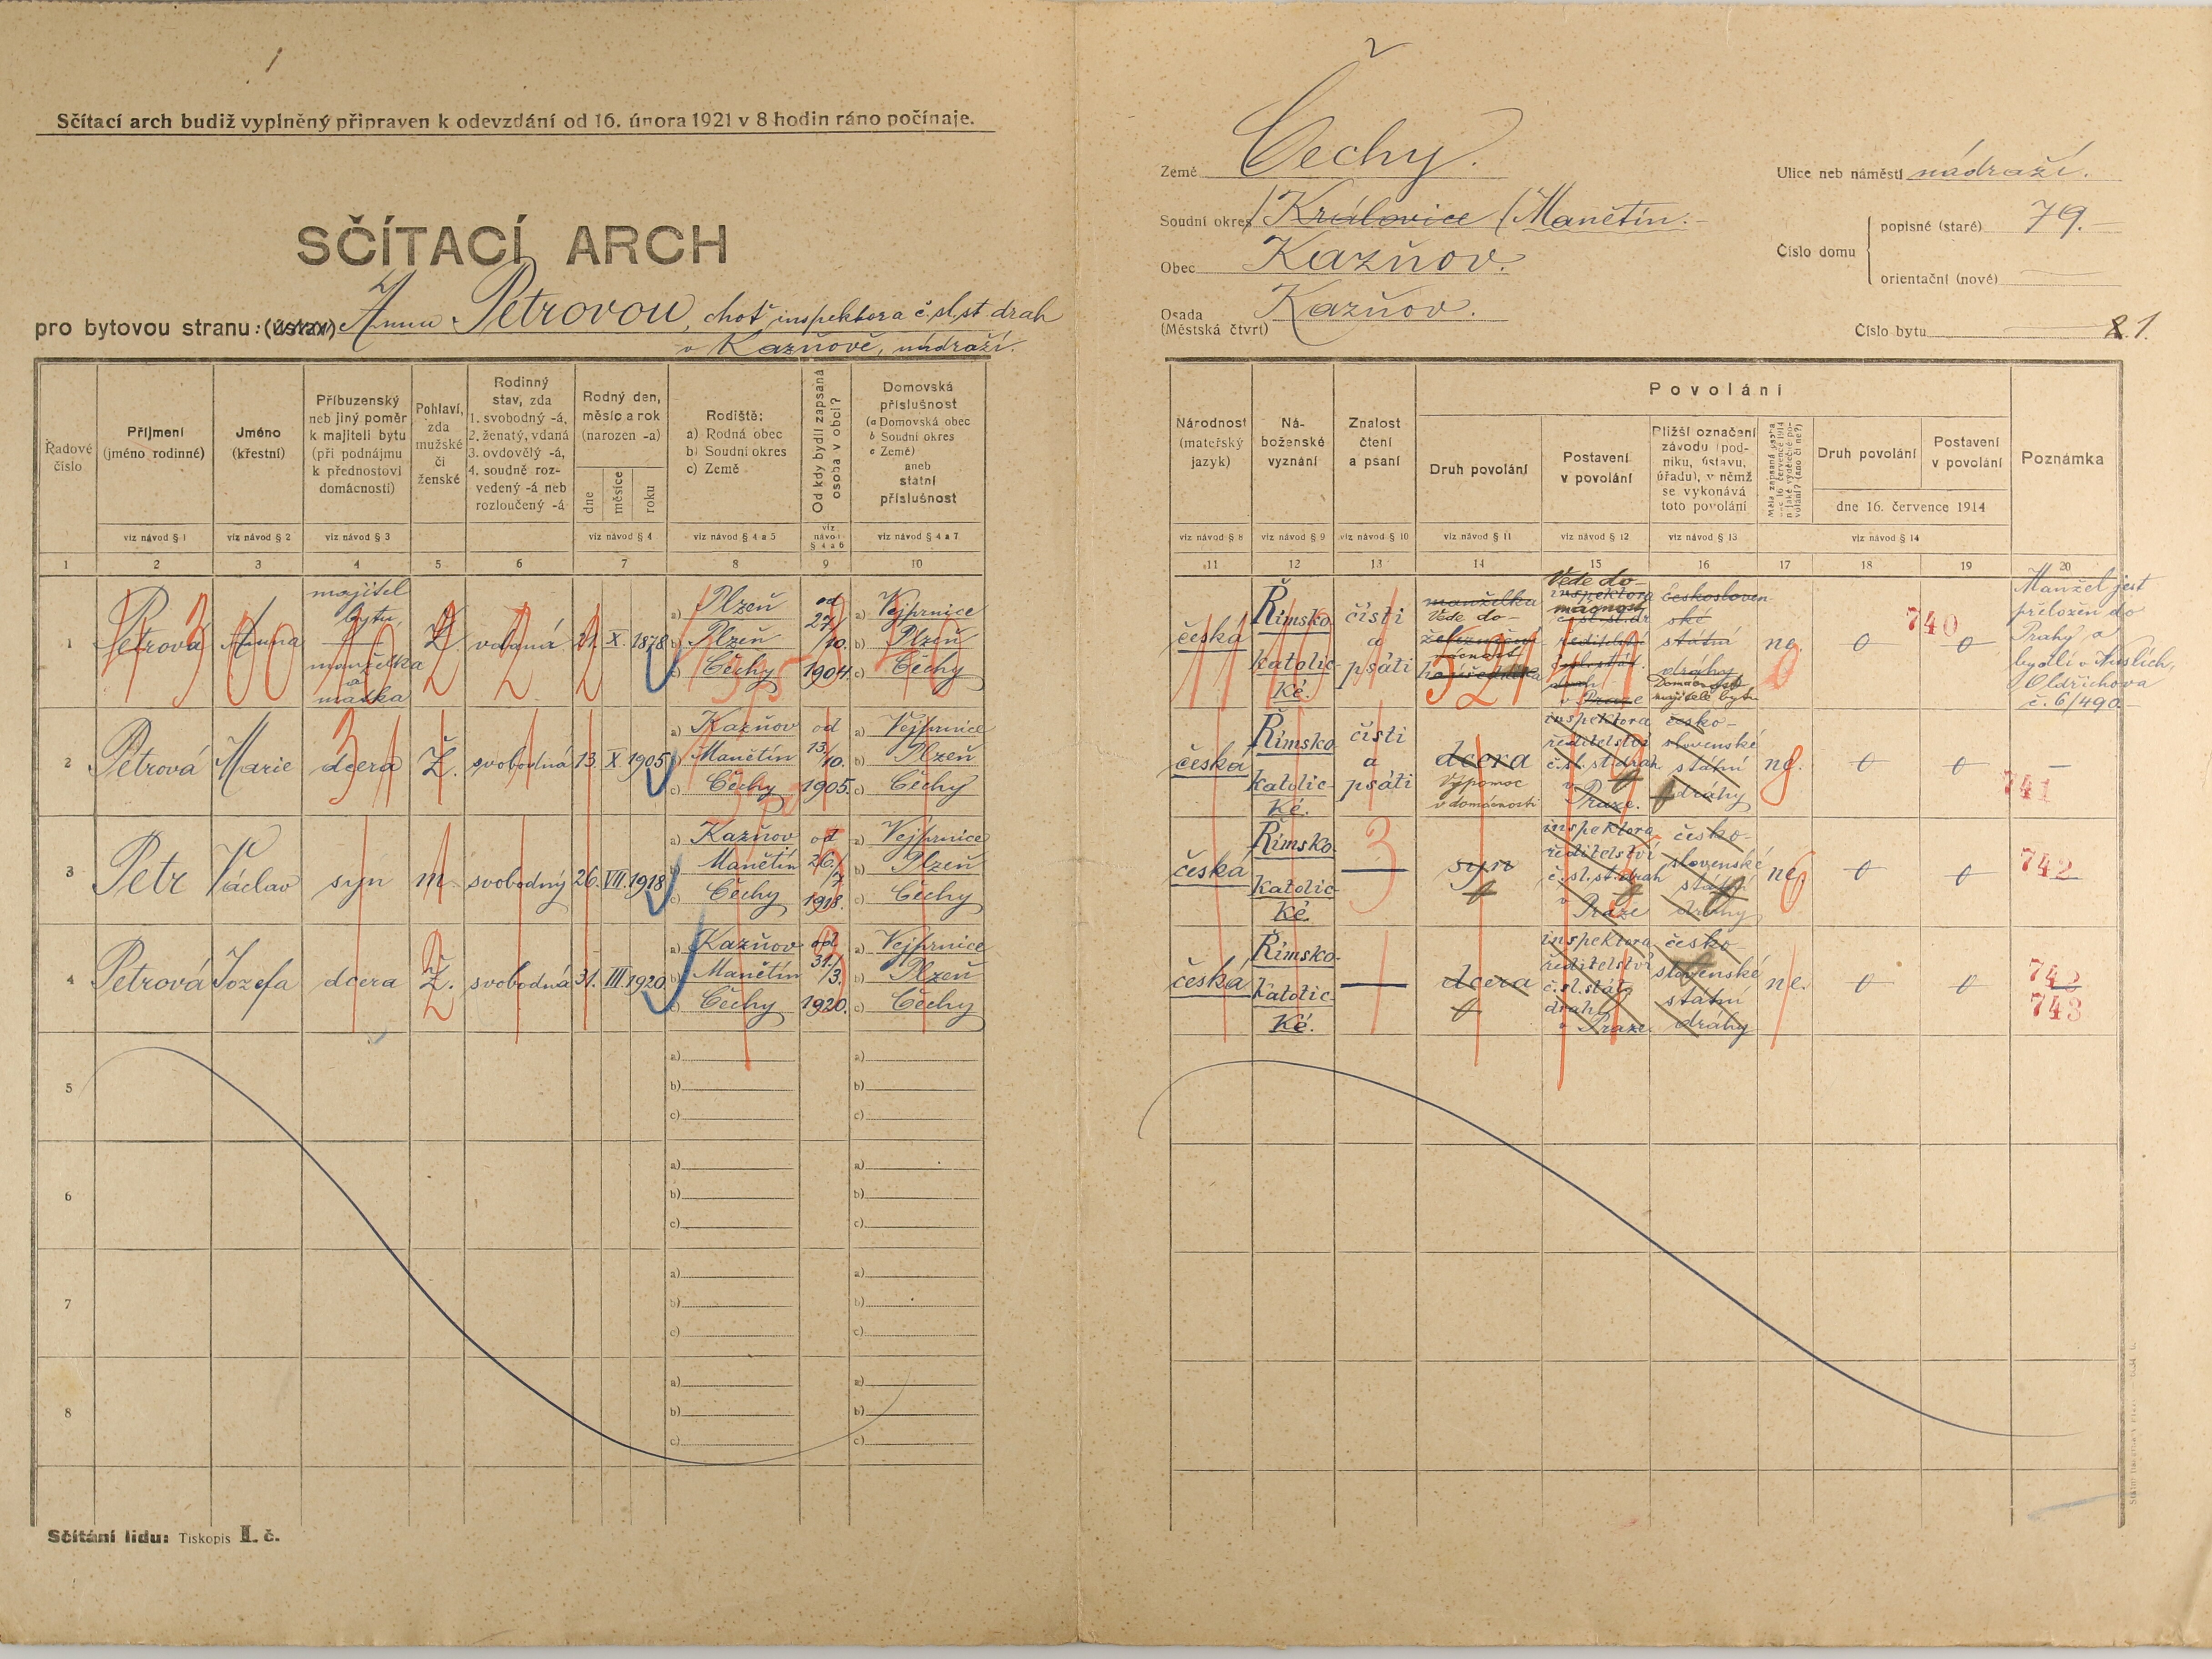 Sčítací arch budiž vyplněný připraven k odevzdání od 16. února 1921 v 8 hodin ráno počínaje.
SČÍTACÍ ARCH
pro bytovou stranu: (ústav) Annu Petrovou, choť inspektora č. sl. st. drah
v Kazňově, nádraží.
Země Čechy.
Soudní okres Královice / Manětín.
Obec Kazňov.
Osada Kazňov.
(Městská čtvrť)
Ulice neb náměstí nádraží.
Číslo domu
popisné (staré) 79.
orientační (nové)
Číslo bytu 1.
Řadové číslo
Příjmení (jméno rodinné)
Jméno (křestní)
Příbuzenský neb jiný poměr k majiteli bytu (při podnájmu k přednostovi domácnosti)
Pohlaví, zda mužské či ženské
Rodinný stav, zda 1. svobodný -á, 2. ženatý, vdaná 3. ovdovělý -á, 4. soudně rozvedený -á neb rozloučený -á
Rodný den, měsíc a rok (narozen -a)
dne měsíce roku
Rodiště: a) Rodná obec b) Soudní okres c) Země
Od kdy bydlí zapsaná osoba v obci?
Domovská příslušnost (a Domovská obec b Soudní okres c Země) aneb statní příslušnost
Národnost (mateřský jazyk)
Náboženské vyznání
Znalost čtení a psaní
Povolání
Druh povolání
Postavení v povolání
Bližší označení závodu (podniku, ústavu, úřadu), v němž se vykonává toto povolání
Druh povolání
Postavení v povolání
dne 16. července 1914
Poznámka
viz návod § 1
viz návod § 2
viz návod § 3
viz návod § 4
viz návod § 4 a 5
viz návod § 4 a 6
viz návod § 4 a 7
viz návod § 8
viz návod § 9
viz návod § 10
viz návod § 11
viz návod § 12
viz návod § 13
viz návod § 14
1 2 3 4 5 6 7 8 9 10 11 12 13 14 15 16 17 18 19 20
1 Petrová Anna majitel bytu, manželka a matka Ž. vdaná 21. X. 1878
a) Plzeň
b) Plzeň
c) Čechy
od 27/10. 1904.
a) Vejprnice
b) Plzeň
c) Čechy
česká Římsko katolické. čísti a psáti
manželka
Vede do-
mácnost
Vede do-
inspektora
mácnost
českosloven-
ské
státní
dráhy
ne. 0 0
740
Manžel jest
přeložen do
Prahy a
bydlí v Nuslích,
Oldřichova
č. 6/490.
2 Petrová Marie dcera Ž. svobodná 13. X. 1905
a) Kazňov
b) Manětín
c) Čechy
od 13/10. 1905.
a) Vejprnice
b) Plzeň
c) Čechy
česká Římsko katolické. čísti a psáti
dcera
výpomoc
v domácnosti
inspektora
ředitelství
č. sl. st. drah
v Praze.
česko-
slovenské
státní
dráhy
ne. 0 0 —
741
3 Petr Václav syn m. svobodný 26. VII. 1918
a) Kazňov
b) Manětín
c) Čechy
od 26./7 1918.
a) Vejprnice
b) Plzeň
c) Čechy
česká Římsko katolické. —
syn
inspektora
ředitelství
č. sl. st. drah
v Praze
česko-
slovenské
státní
dráhy
ne 0 0
742
4 Petrová Jozefa dcera Ž. svobodná 31. III. 1920
a) Kazňov
b) Manětín
c) Čechy
od 31./3. 1920.
a) Vejprnice
b) Plzeň
c) Čechy
česká Římsko-katolické. —
dcera
inspektora
ředitelství
č. sl. stát.
drah
v Praze
česko-
slovenské
státní
dráhy
ne. 0 0
742
743
5 a) b) c) a) b) c)
6 a) b) c) a) b) c)
7 a) b) c) a) b) c)
8 a) b) c) a) b) c)
Sčítání lidu: Tiskopis I. č.